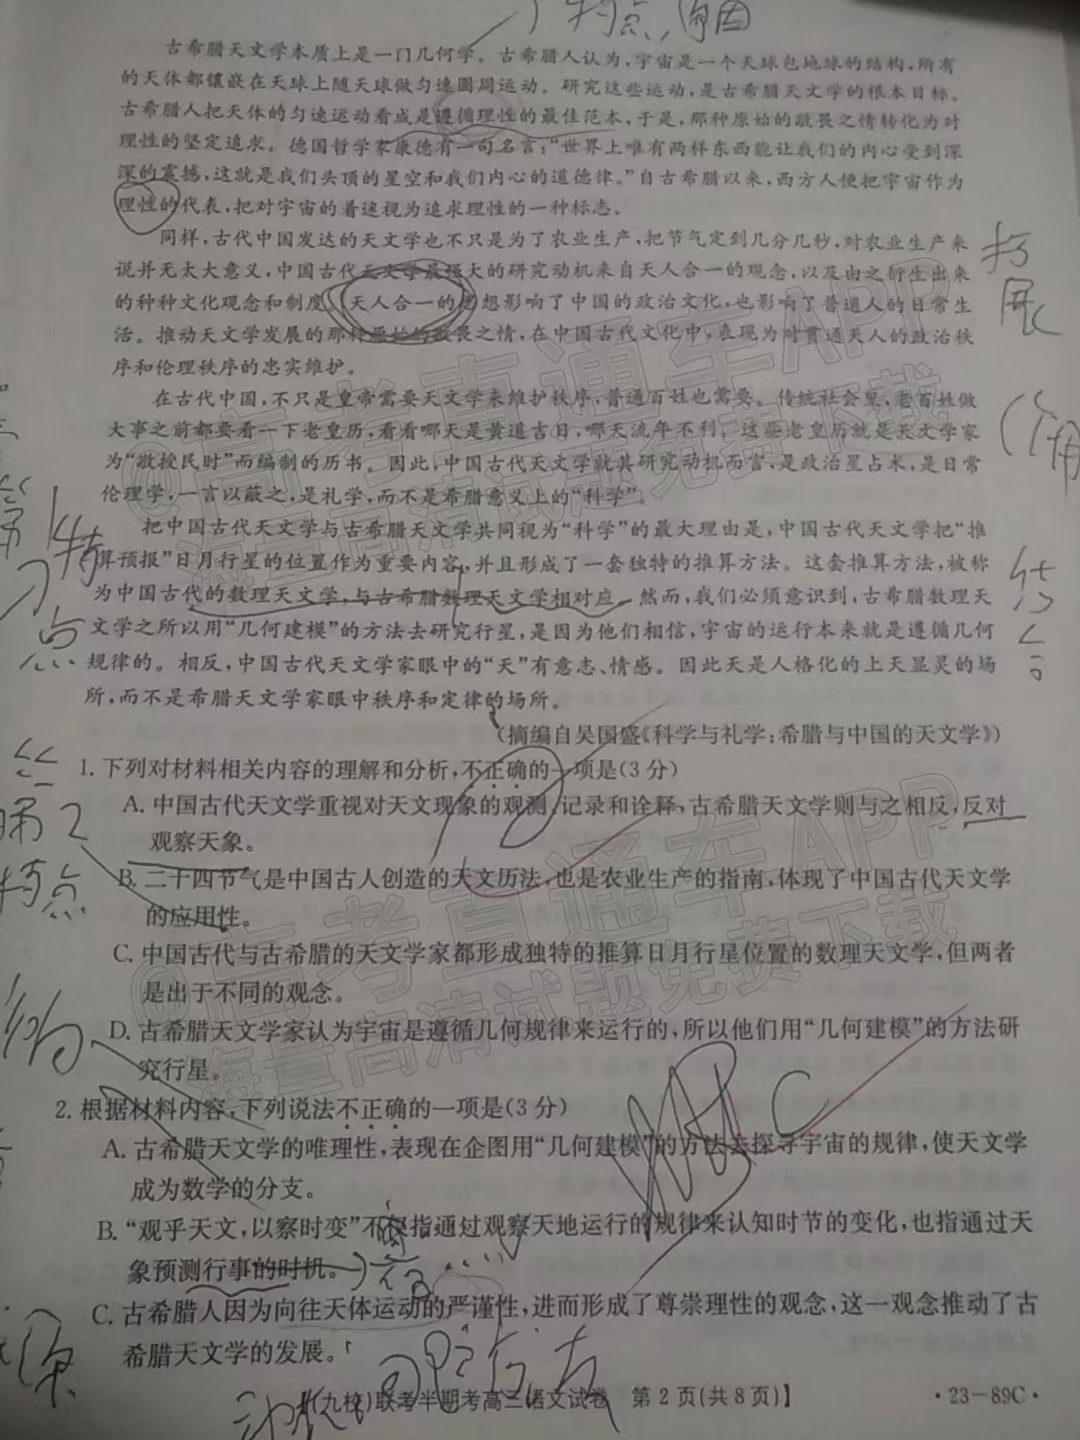 特点、原因
古希腊天文学本质上是一门几何学。古希腊人认为,宇宙是一个天球包地球的结构,所有
的天体都镶嵌在天球上随天球做匀速圆周运动。研究这些运动,是古希腊天文学的根本目标。
古希腊人把天体的匀速运动看成是遵循理性的最佳范本,于是,那种原始的敬畏之情转化为对
理性的坚定追求。德国哲学家康德有一句名言:“世界上唯有两样东西能让我们的内心受到深
深的震撼,这就是我们头顶的星空和我们内心的道德律。”自古希腊以来,西方人便把宇宙作为
理性的代表,把对宇宙的着迷视为追求理性的一种标志。
同样,古代中国发达的天文学也不只是为了农业生产,把节气定到几分几秒,对农业生产来
说并无太大意义,中国古代天文学最强大的研究动机来自天人合一的观念,以及由之衍生出来
的种种文化观念和制度。天人合一的思想影响了中国的政治文化,也影响了普通人的日常生
活。推动天文学发展的那种原始的敬畏之情,在中国古代文化中,表现为对贯通天人的政治秩
序和伦理秩序的忠实维护。
在古代中国,不只是皇帝需要天文学来维护秩序,普通百姓也需要。传统社会里,老百姓做
大事之前都要看一下老皇历,看看哪天是黄道吉日,哪天流年不利。这些老皇历就是天文学家
为“敬授民时”而编制的历书。因此,中国古代天文学就其研究动机而言,是政治星占术,是日常
伦理学,一言以蔽之,是礼学,而不是希腊意义上的“科学”。
把中国古代天文学与古希腊天文学共同视为“科学”的最大理由是,中国古代天文学把“推
算预报”日月行星的位置作为重要内容,并且形成了一套独特的推算方法。这套推算方法,被称
为中国古代的数理天文学,与古希腊数理天文学相对应。然而,我们必须意识到,古希腊数理天
文学之所以用“几何建模”的方法去研究行星,是因为他们相信,宇宙的运行本来就是遵循几何
规律的。相反,中国古代天文学家眼中的“天”有意志、情感。因此天是人格化的上天显灵的场
所,而不是希腊天文学家眼中秩序和定律的场所。
(摘编自吴国盛《科学与礼学:希腊与中国的天文学》)
1. 下列对材料相关内容的理解和分析,不正确的一项是(3分)
A. 中国古代天文学重视对天文现象的观测、记录和诠释,古希腊天文学则与之相反,反对
观察天象。
B. 二十四节气是中国古人创造的天文历法,也是农业生产的指南,体现了中国古代天文学
的应用性。
C. 中国古代与古希腊的天文学家都形成独特的推算日月行星位置的数理天文学,但两者
是出于不同的观念。
D. 古希腊天文学家认为宇宙是遵循几何规律来运行的,所以他们用“几何建模”的方法研
究行星。
2. 根据材料内容,下列说法不正确的一项是(3分)
A. 古希腊天文学的唯理性,表现在企图用“几何建模”的方法去探寻宇宙的规律,使天文学
成为数学的分支。
B. “观乎天文,以察时变”不仅指通过观察天地运行的规律来认知时节的变化,也指通过天
象预测行事的时机。
C. 古希腊人因为向往天体运动的严谨性,进而形成了尊崇理性的观念,这一观念推动了古
希腊天文学的发展。
(九校)联考半期考高三语文试卷 第2页(共8页)】
·23-89C·
拓
展
结
合
特
点
第2
特点
C
@高考直通车APP
海量高清试题免费下载
@高考直通车APP
海量高清试题免费下载